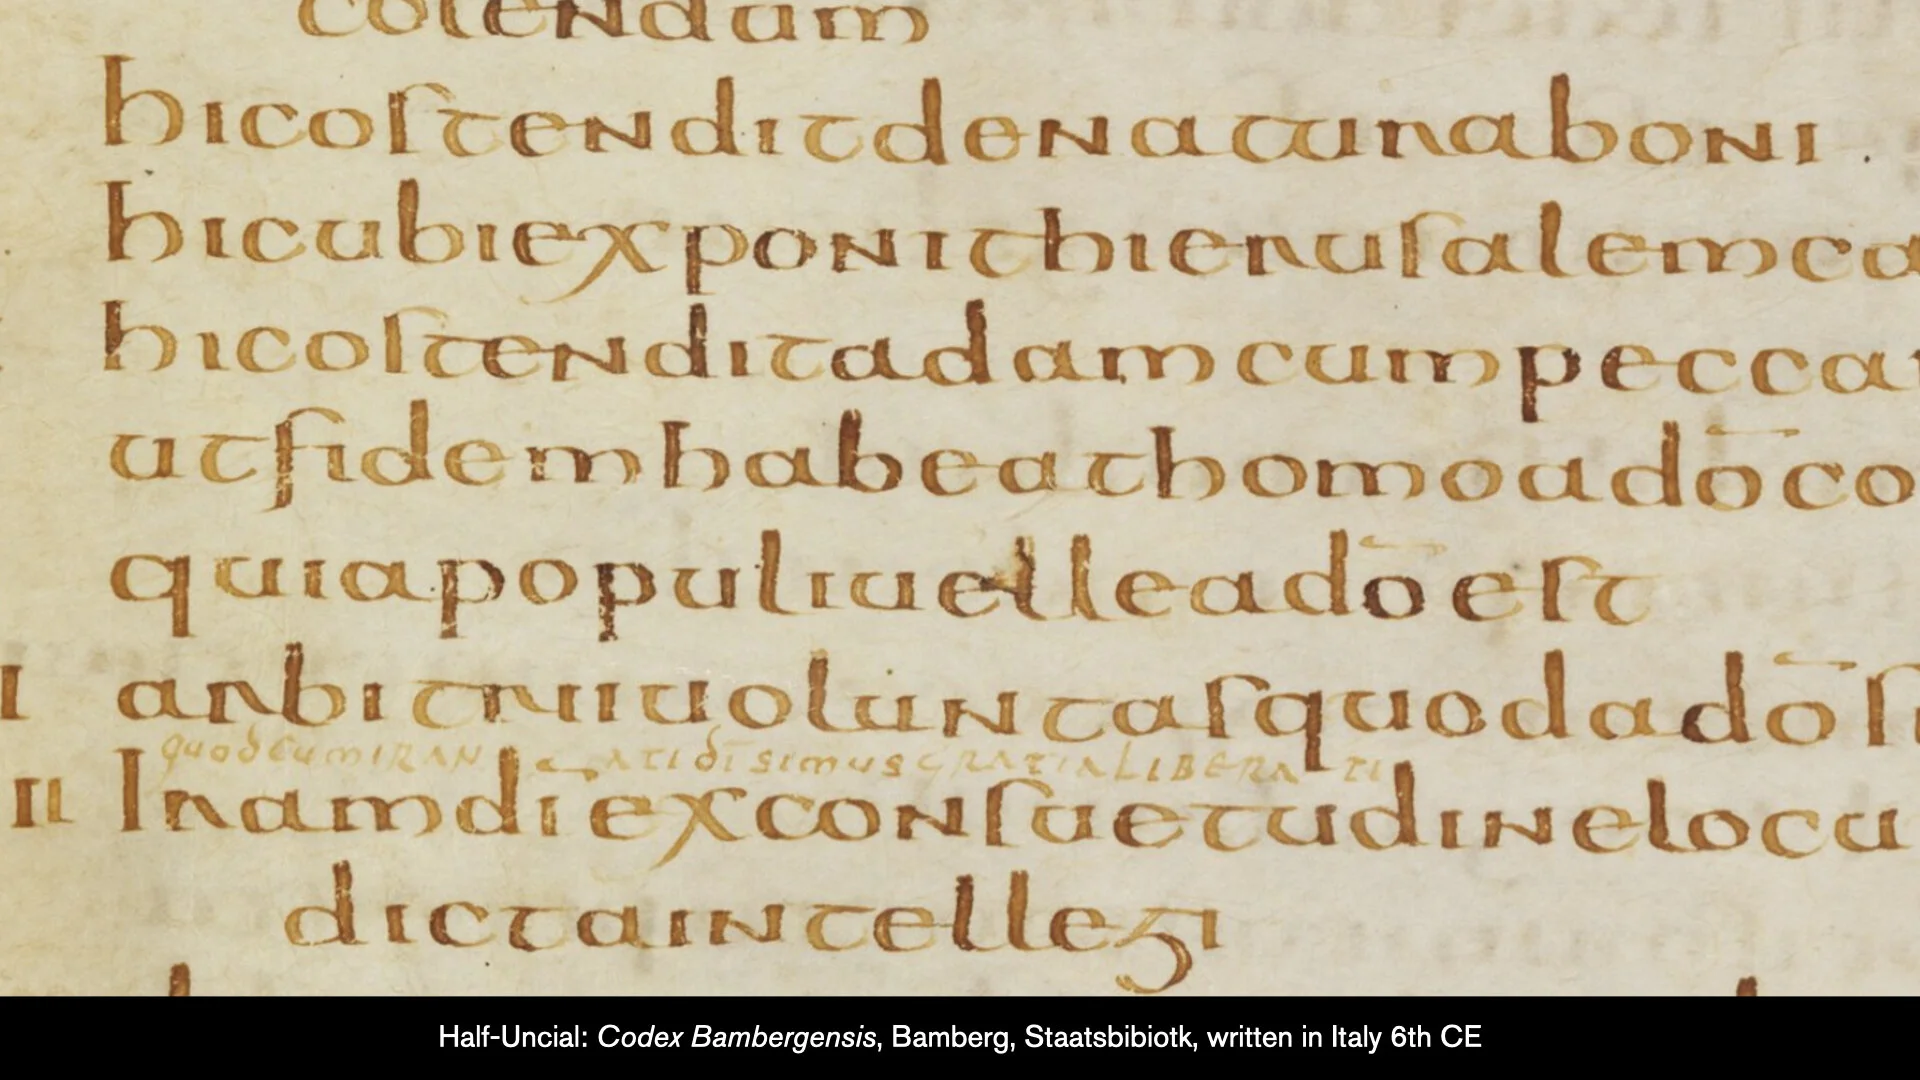 colendum
hicostenditdenaturaboni
hicubiexponithierusalemca
hicostenditadamcumpecca
utfidemhabeathomoadōco
quiapopuliuelleadōest
I arbitriiuoluntasquodadōs
quodcumiRAN ATIdīsimusGRATIALIBERATI
II Inamdiexconsuetudinelocu
dictaintellegi
Half-Uncial: Codex Bambergensis, Bamberg, Staatsbibiotk, written in Italy 6th CE